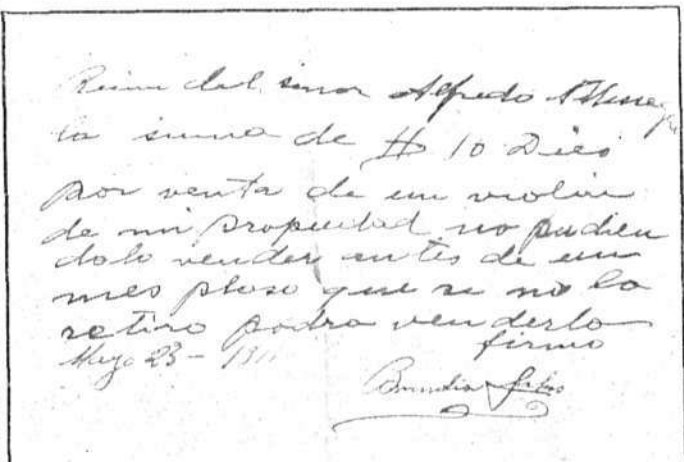 del señor Alfredo
la suma de $ 10 Dies
por venta de un violin
de mi propiedad no pudien
dolo vender antes de un
mes plaso que si no lo
retiro podra venderlo
firmo
Mayo 23 -